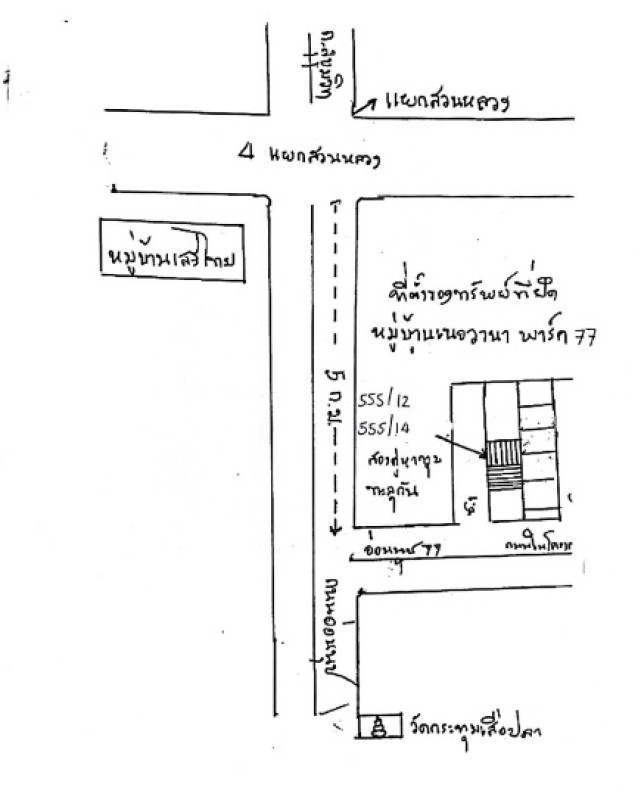 ถ.สุขุมวิท
แยกสวนหลวง
4 แยกสวนหลวง
หมู่บ้านเสรีไทย
ที่ตั้งของทรัพย์ที่ยึด
หมู่บ้านเนอวานา พาร์ค 77
5 ก.ม.
555/12
555/14
สองคูหา
ทะลุกัน
อ่อนนุช 77
ถนนในโครง
ถนนอ่อนนุช
วัดกระทุ่มเสือปลา